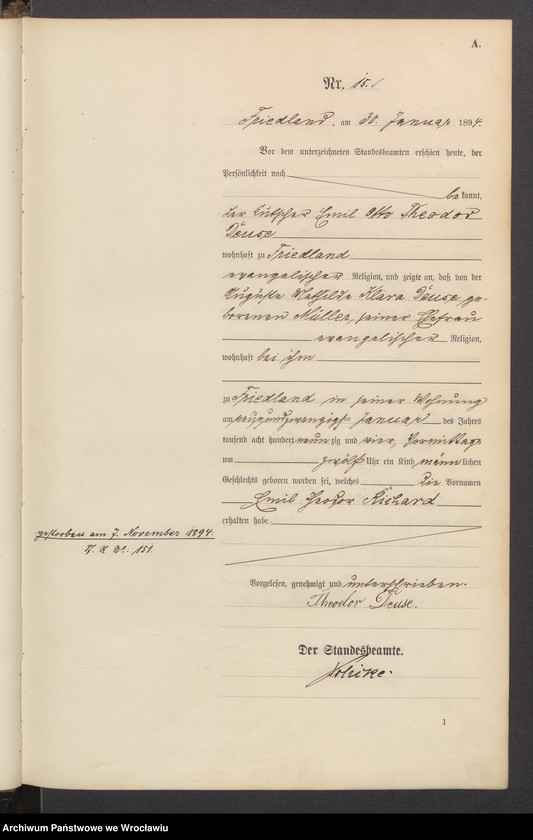 A.
Nr. 15.
Friedland, am 30. Januar 1894.
Vor dem unterzeichneten Standesbeamten erschien heute, der
Persönlichkeit nach
bekannt,
der Kutscher Emil Otto Theodor
Deuse
wohnhaft zu Friedland
evangelischer Religion, und zeigte an, daß von der
Auguste Mathilde Klara Deuse, ge-
borenen Müller, seiner Ehefrau
evangelischer Religion,
wohnhaft bei ihm
zu Friedland in seiner Wohnung
am neunundzwanzigst Januar des Jahres
tausend acht hundert neunzig und vier, Vormittags
um zwölf Uhr ein Kind männlichen
Geschlechts geboren worden sei, welches die Vornamen
Emil Theodor Richard
erhalten habe.
gestorben am 7. November 1894.
Nr. 151.
Vorgelesen, genehmigt und unterschrieben.
Theodor Deuse.
Der Standesbeamte.
1
Archiwum Państwowe we Wrocławiu